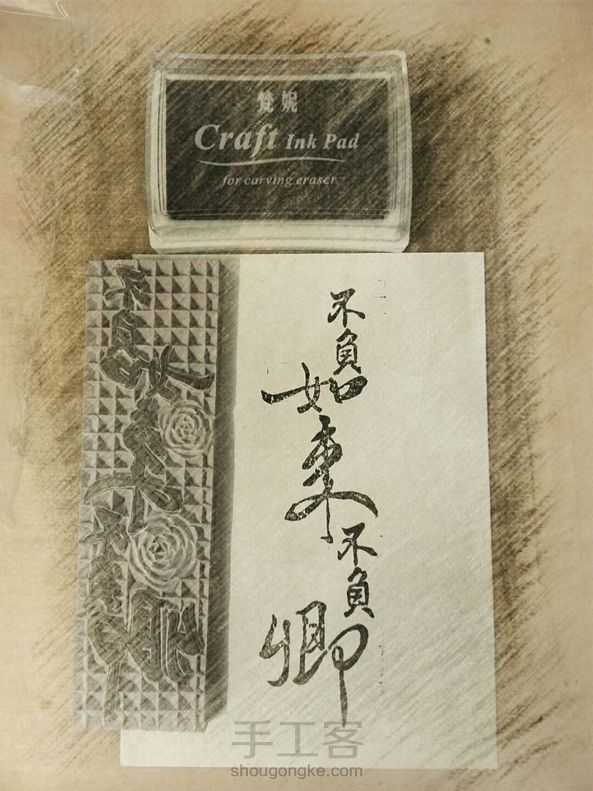 梵妮
Craft Ink Pad
for carving eraser
不負
如来
不負
卿
手工客
shougongke.com